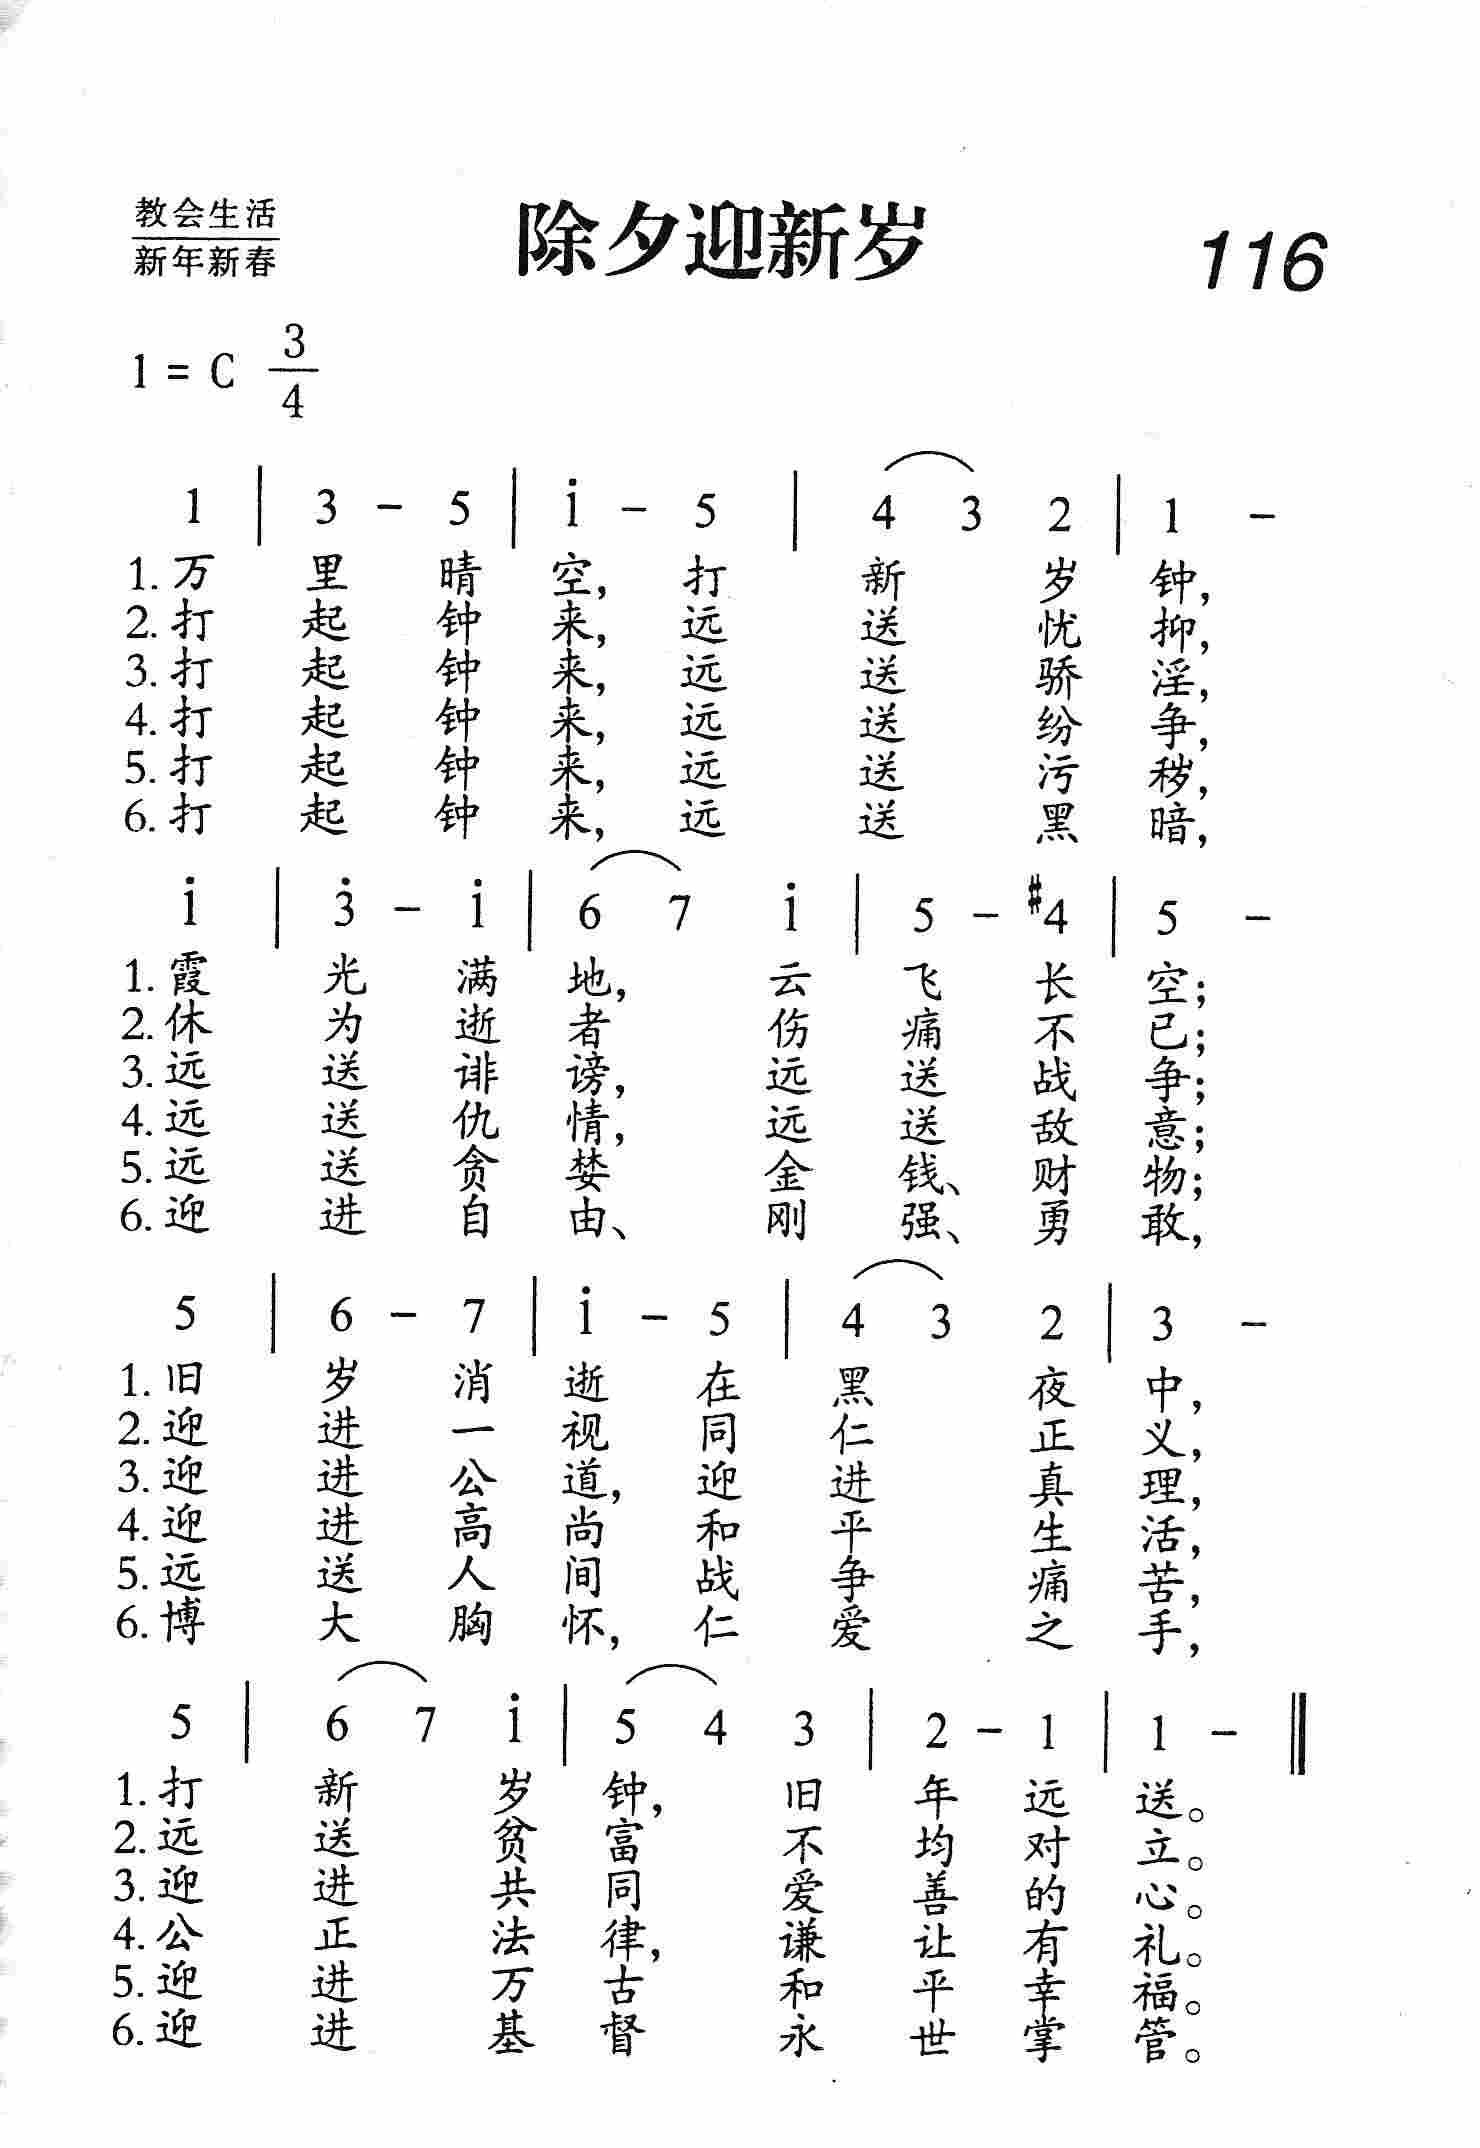 教会生活
新年新春
除夕迎新岁
116
1 = C 3/4
1 | 3 - 5 | i - 5 | 4 3 2 | 1 -
1. 万里晴空，打新岁钟，
2. 打起钟来，远送忧抑，
3. 打起钟来，远送骄淫，
4. 打起钟来，远送纷争，
5. 打起钟来，远送污秽，
6. 打起钟来，远送黑暗，
i | 3̇ - i | 6 7 i | 5 - #4 | 5 -
1. 霞光满地，云飞长空；
2. 休为逝者伤痛不已；
3. 远送诽谤，远送战争；
4. 远送仇情，远送敌意；
5. 远送贪婪金钱、财物；
6. 迎进自由、刚强、勇敢，
5 | 6 - 7 | i - 5 | 4 3 2 | 3 -
1. 旧岁消逝在黑夜中，
2. 迎进一视同仁正义，
3. 迎进公道，迎进真理，
4. 迎进高尚和平生活，
5. 远送人间战争痛苦，
6. 博大胸怀，仁爱之手，
5 | 6 7 i | 5 4 3 | 2 - 1 | 1 - ‖
1. 打新岁钟，旧年远送。
2. 远送贫富不均对立。
3. 迎进共同爱善的心。
4. 公正法律，谦让有礼。
5. 迎进万古和平幸福。
6. 迎进基督永世掌管。